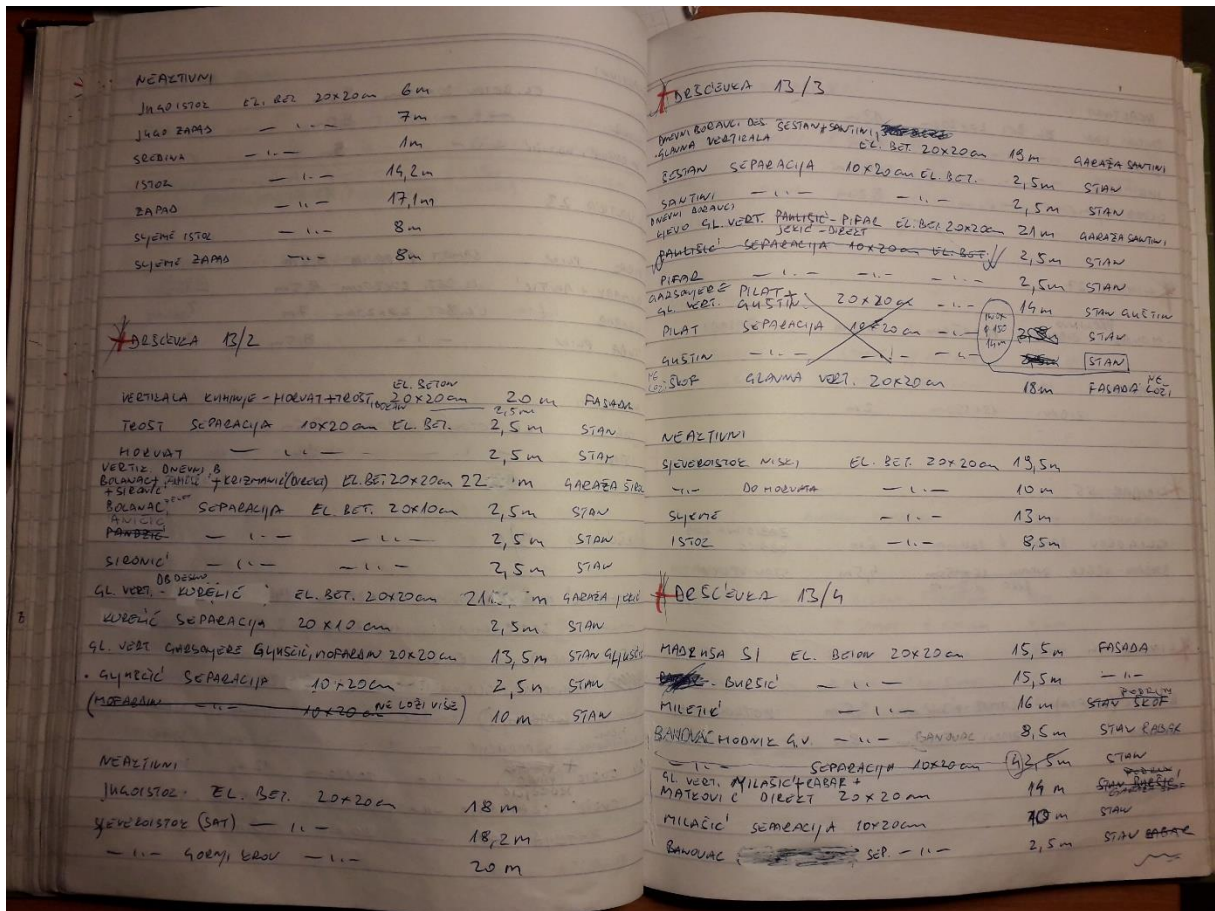 NEAKTIVNI
JUGOISTOK EL. BET. 20x20cm 6m
JUGO ZAPAD —ıı— 7m
SREDINA —ıı— 1m
ISTOK —ıı— 14,2m
ZAPAD —ıı— 17,1m
SLJEME ISTOK —ıı— 8m
SLJEME ZAPAD —ıı— 8m
DRŠĆEVKA 13/2
EL. BETON
VERTIKALA KUHINJE - HORVAT + TROŠT, 20x20cm 20m FASADA
2,5m
TROŠT SEPARACIJA 10x20cm EL. BET. 2,5m STAN
HORVAT —ıı— 2,5m STAN
VERTIK. DNEVNI B.
BOLANAC + + KRIZMANIĆ (DIREKT) EL. BET 20x20cm 22 m GARAŽA
+ SIRONIĆ
BOLANAC SEPARACIJA EL. BET. 20x10cm 2,5m STAN
ANIČIĆ
PANDŽIĆ —ıı— —ıı— 2,5m STAN
SIRONIĆ —ıı— —ıı— 2,5m STAN
DB DESNO
GL. VERT. - KURELIĆ EL. BET. 20x20cm 21 m GARAŽA
KURELIĆ SEPARACIJA 20x10cm 2,5m STAN
GL. VERT GARSONJERE GLJUŠČIĆ, MOFARDIN 20x20cm 13,5m STAN GLJUŠČIĆ
GLJUŠČIĆ SEPARACIJA 10x20cm 2,5m STAN
(MOFARDIN —ıı— 10x20cm NE LOŽI VIŠE) 10m STAN
NEAKTIVNI
JUGOISTOK - EL. BET. 20x20cm 18m
SJEVEROISTOK (SAT) —ıı— 18,2m
—ıı— GORNJI KROV —ıı— 20m
DRŠĆEVKA 13/3
DNEVNI BORAVCI DES ŠESTAN + SANTINI,
GLAVNA VERTIKALA EL. BET. 20x20cm 19m GARAŽA SANTINI
ŠESTAN SEPARACIJA 10x20cm EL. BET. 2,5m STAN
SANTINI —ıı— —ıı— 2,5m STAN
DNEVNI BORAVCI
LJEVO GL. VERT. PAULIŠIĆ - PIFAR EL. BET 20x20cm 21m GARAŽA SANTINI
JEKIĆ - DIREKT
PAULIŠIĆ SEPARACIJA 10x20cm EL. BET. 2,5m STAN
PIFAR —ıı— —ıı— 2,5m STAN
GARSONJERE PILAT +
GL. VERT. GUŠTIN 20x20cm —ıı— 14m STAN GUŠTIN
INOX
φ 150
14m
PILAT SEPARACIJA 10x20cm —ıı— STAN
GUŠTIN —ıı— —ıı— —ıı— STAN
NE LOŽI ŠKOF GLAVNA VERT. 20x20cm 18m FASADA NE LOŽI
NEAKTIVNI
SJEVEROISTOK NISKI EL. BET. 20x20cm 19,5m
—ıı— DO HORVATA —ıı— 10m
SLJEME —ıı— 13m
ISTOK —ıı— 8,5m
DRŠĆEVKA 13/4
MADRUŠA SI EL. BETON 20x20cm 15,5m FASADA
- BURŠIĆ —ıı— 15,5m —ıı—
PODRUM
MILETIĆ —ıı— 16m STAN ŠKOF
BANOVAC HODNIK G.V. —ıı— BANOVAC 8,5m STAN RABAR
—ıı— SEPARACIJA 10x20cm 2,5m STAN
GL. VERT. MILAŠIĆ + RABAR +
MATKOVIĆ DIREKT 20x20cm 14m
MILAČIĆ SEPARACIJA 10x20cm 10m STAN
BANOVAC SEP. —ıı— 2,5m STAN RABAR